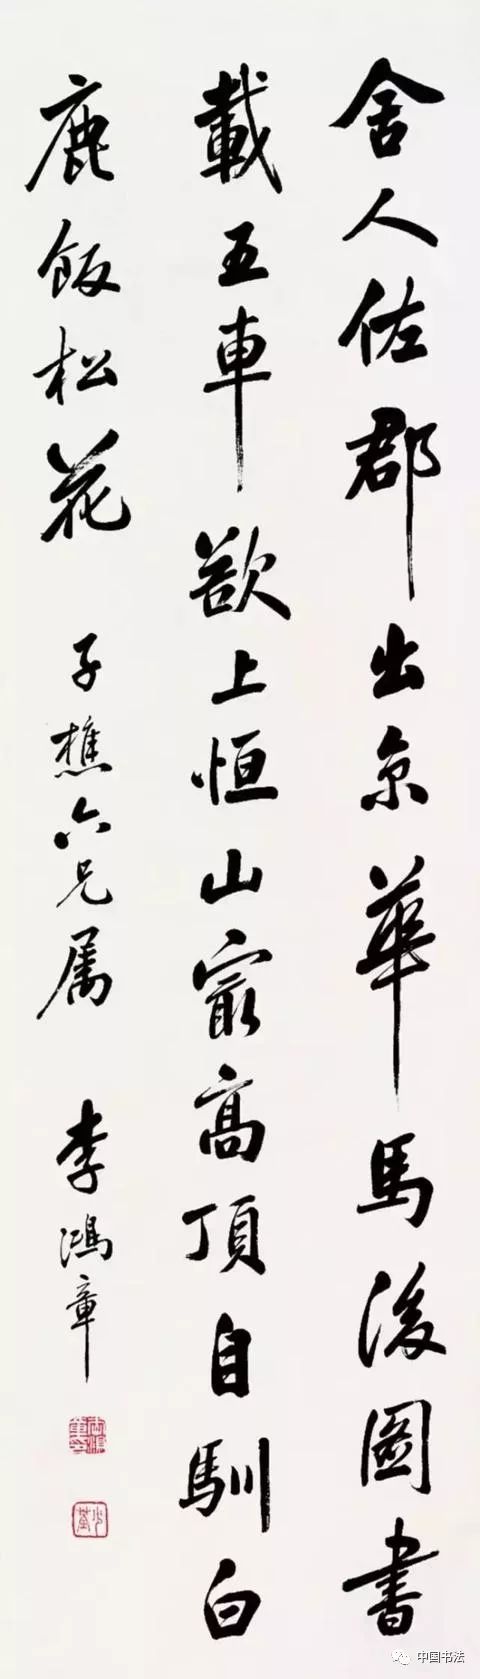 舍人佐郡出京華馬後圖書
載五車欲上恒山最高頂自馴白
鹿飯松花
子樵六兄属
李鴻章
中国书法